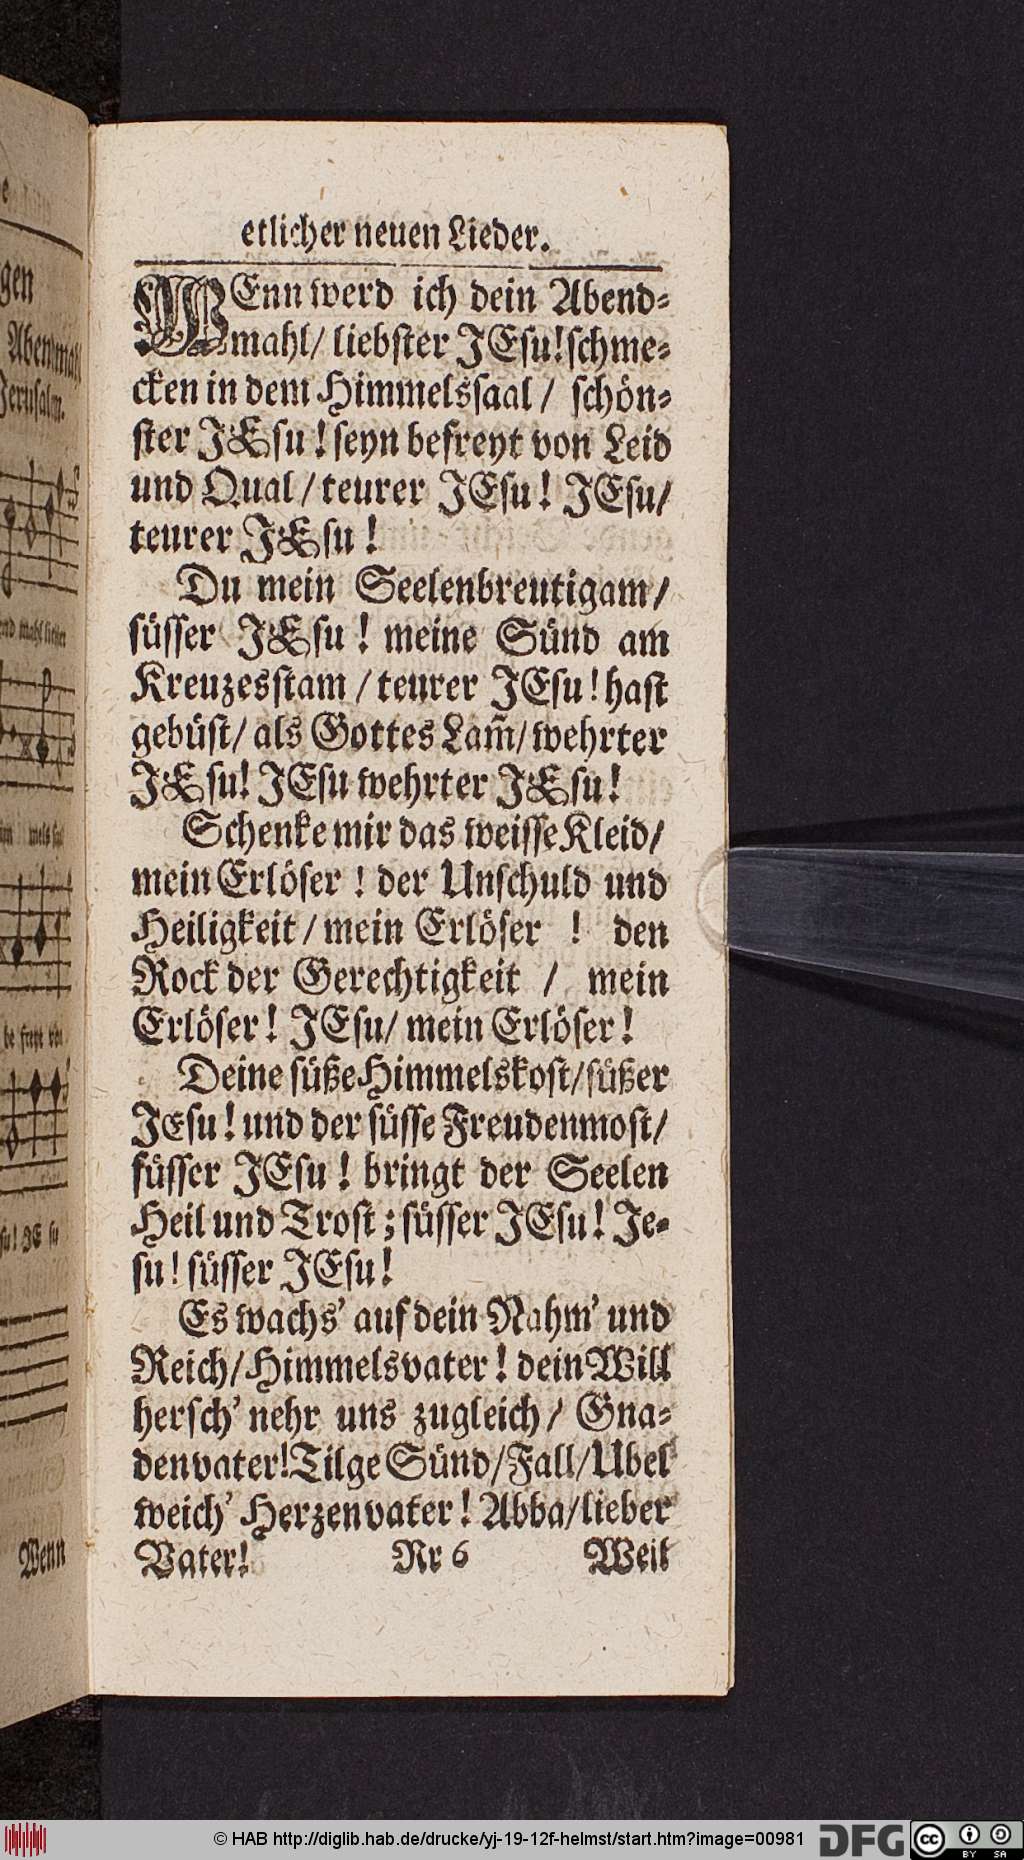 etlicher neuen Lieder.
WEnn werd ich dein Abend-
mahl/ liebster JEsu! schme-
cken in dem Himmelssaal/ schön-
ster JEsu! seyn befreyt von Leid
und Qual/ teurer JEsu! JEsu/
teurer JEsu!
Du mein Seelenbreutigam/
süsser JEsu! meine Sünd am
Kreuzesstam/ teurer JEsu! hast
gebüst/ als Gottes Lam̃/ wehrter
JEsu! JEsu wehrter JEsu!
Schenke mir das weisse Kleid/
mein Erlöser! der Unschuld und
Heiligkeit/ mein Erlöser! den
Rock der Gerechtigkeit/ mein
Erlöser! JEsu/ mein Erlöser!
Deine süße Himmelskost/ süßer
JEsu! und der süsse Freudenmost/
süsser JEsu! bringt der Seelen
Heil und Trost; süsser JEsu! Je-
su! süsser JEsu!
Es wachs' auf dein Nahm' und
Reich/ Himmelsvater! dein Will
hersch' nehr uns zugleich/ Gna-
denvater! Tilge Sünd/ Fall/ Ubel
weich' Herzenvater! Abba/ lieber
Vater! Rr 6 Weil
gen
Abendmahl
Jerusalem.
be freyt von
Wenn
© HAB http://diglib.hab.de/drucke/yj-19-12f-helmst/start.htm?image=00981
DFG
cc BY SA